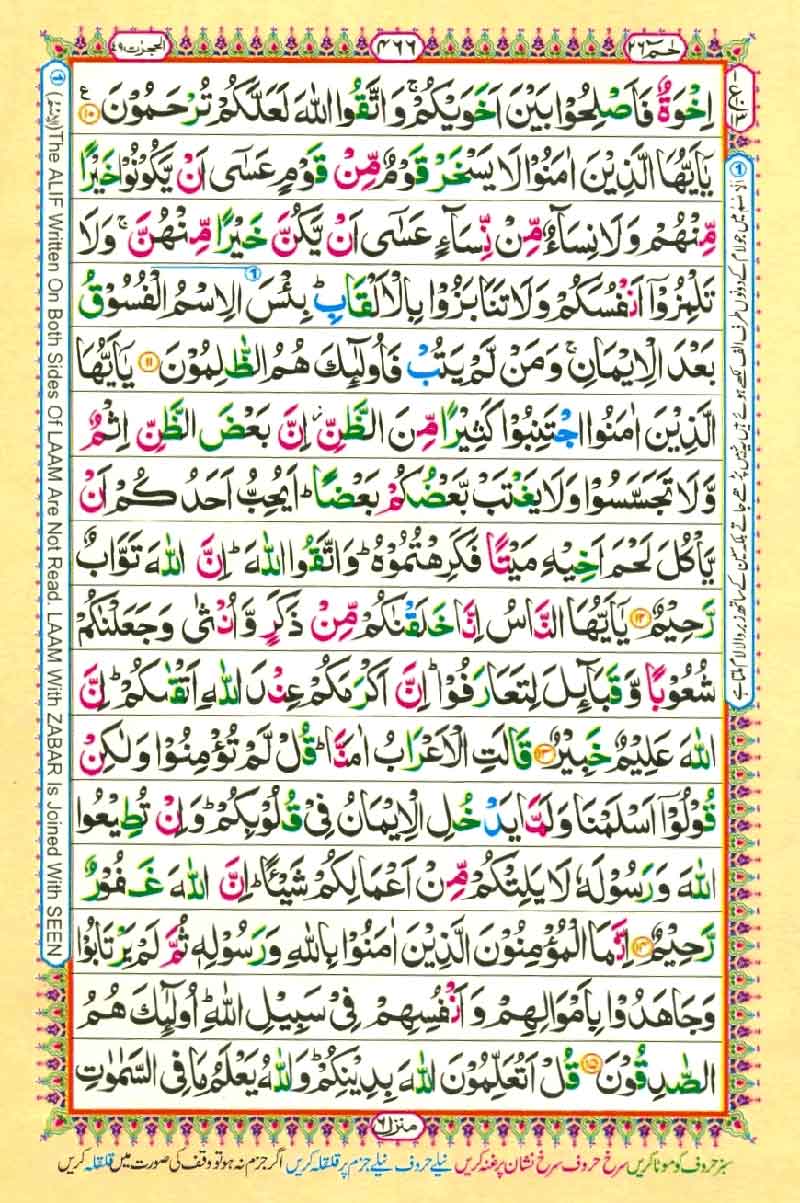 حٰمٓ ٢٦
٤٦٦
الحجرٰت ٤٩
اِخْوَةٌ فَاَصْلِحُوْا بَيْنَ اَخَوَيْكُمْ ۚ وَاتَّقُوا اللّٰهَ لَعَلَّكُمْ تُرْحَمُوْنَ ١٠
يٰۤاَيُّهَا الَّذِيْنَ اٰمَنُوْا لَا يَسْخَرْ قَوْمٌ مِّنْ قَوْمٍ عَسٰۤى اَنْ يَّكُوْنُوْا خَيْرًا
مِّنْهُمْ وَلَا نِسَآءٌ مِّنْ نِّسَآءٍ عَسٰۤى اَنْ يَّكُنَّ خَيْرًا مِّنْهُنَّ ۚ وَلَا
تَلْمِزُوْۤا اَنْفُسَكُمْ وَلَا تَنَابَزُوْا بِالْاَلْقَابِ ؕ بِئْسَ الِاسْمُ الْفُسُوْقُ
بَعْدَ الْاِيْمَانِ ۚ وَمَنْ لَّمْ يَتُبْ فَاُولٰٓئِكَ هُمُ الظّٰلِمُوْنَ ١١ يٰۤاَيُّهَا
الَّذِيْنَ اٰمَنُوا اجْتَنِبُوْا كَثِيْرًا مِّنَ الظَّنِّ ؗ اِنَّ بَعْضَ الظَّنِّ اِثْمٌ
وَّلَا تَجَسَّسُوْا وَلَا يَغْتَبْ بَّعْضُكُمْ بَعْضًا ؕ اَيُحِبُّ اَحَدُكُمْ اَنْ
يَّاْكُلَ لَحْمَ اَخِيْهِ مَيْتًا فَكَرِهْتُمُوْهُ ؕ وَاتَّقُوا اللّٰهَ ؕ اِنَّ اللّٰهَ تَوَّابٌ
رَّحِيْمٌ ١٢ يٰۤاَيُّهَا النَّاسُ اِنَّا خَلَقْنٰكُمْ مِّنْ ذَكَرٍ وَّاُنْثٰى وَجَعَلْنٰكُمْ
شُعُوْبًا وَّقَبَآئِلَ لِتَعَارَفُوْا ؕ اِنَّ اَكْرَمَكُمْ عِنْدَ اللّٰهِ اَتْقٰىكُمْ ؕ اِنَّ
اللّٰهَ عَلِيْمٌ خَبِيْرٌ ١٣ قَالَتِ الْاَعْرَابُ اٰمَنَّا ؕ قُلْ لَّمْ تُؤْمِنُوْا وَلٰكِنْ
قُوْلُوْۤا اَسْلَمْنَا وَلَمَّا يَدْخُلِ الْاِيْمَانُ فِيْ قُلُوْبِكُمْ ؕ وَاِنْ تُطِيْعُوا
اللّٰهَ وَرَسُوْلَهٗ لَا يَلِتْكُمْ مِّنْ اَعْمَالِكُمْ شَيْـًٔا ؕ اِنَّ اللّٰهَ غَفُوْرٌ
رَّحِيْمٌ ١٤ اِنَّمَا الْمُؤْمِنُوْنَ الَّذِيْنَ اٰمَنُوْا بِاللّٰهِ وَرَسُوْلِهٖ ثُمَّ لَمْ يَرْتَابُوْا
وَجَاهَدُوْا بِاَمْوَالِهِمْ وَاَنْفُسِهِمْ فِيْ سَبِيْلِ اللّٰهِ ؕ اُولٰٓئِكَ هُمُ
الصّٰدِقُوْنَ ١٥ قُلْ اَتُعَلِّمُوْنَ اللّٰهَ بِدِيْنِكُمْ ؕ وَاللّٰهُ يَعْلَمُ مَا فِي السَّمٰوٰتِ
منزل ٦
سبز حروف کو موٹا کریں سرخ حروف سرخ نشان پر غنہ کریں نیلے حروف نیلے جزم پر قلقلہ کریں اگر جزم نہ ہو تو وقف کی صورت میں قلقلہ کریں
The ALIF Written On Both Sides Of LAAM Are Not Read. LAAM With ZABAR Is Joined With SEEN